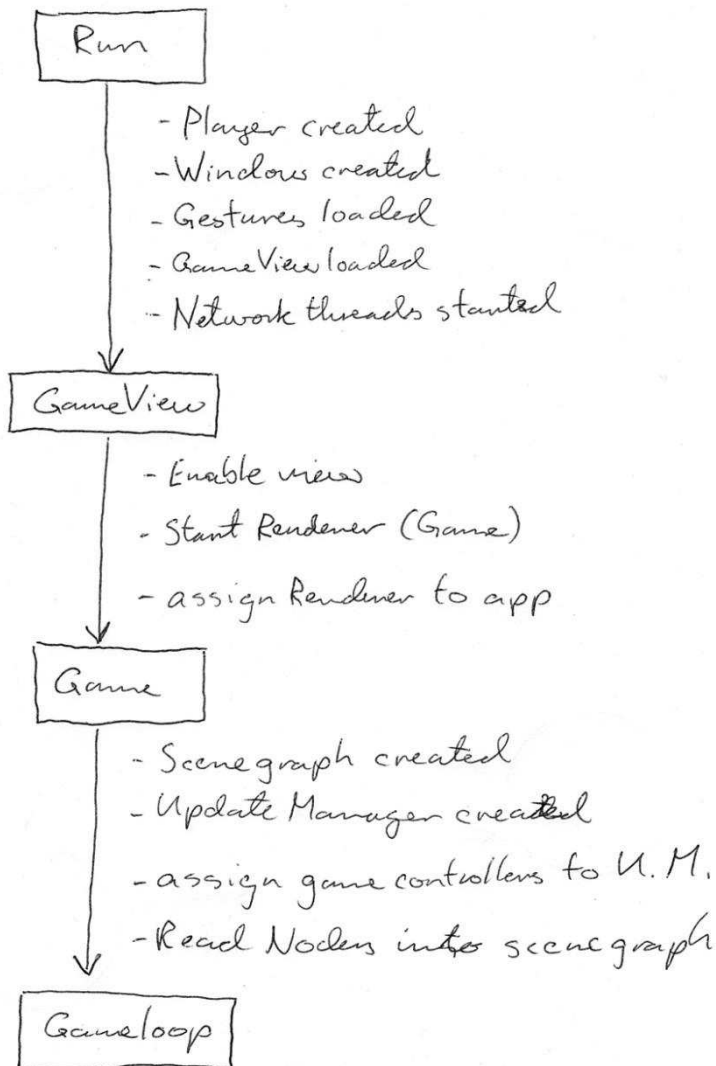 Run
- Player created
- Window created
- Gestures loaded
- GameView loaded
- Network threads started
GameView
- Enable view
- Start Renderer (Game)
- assign Renderer to app
Game
- Scenegraph created
- Update Manager created
- assign game controllers to U.M.
- Read Nodes into scenegraph
Gameloop